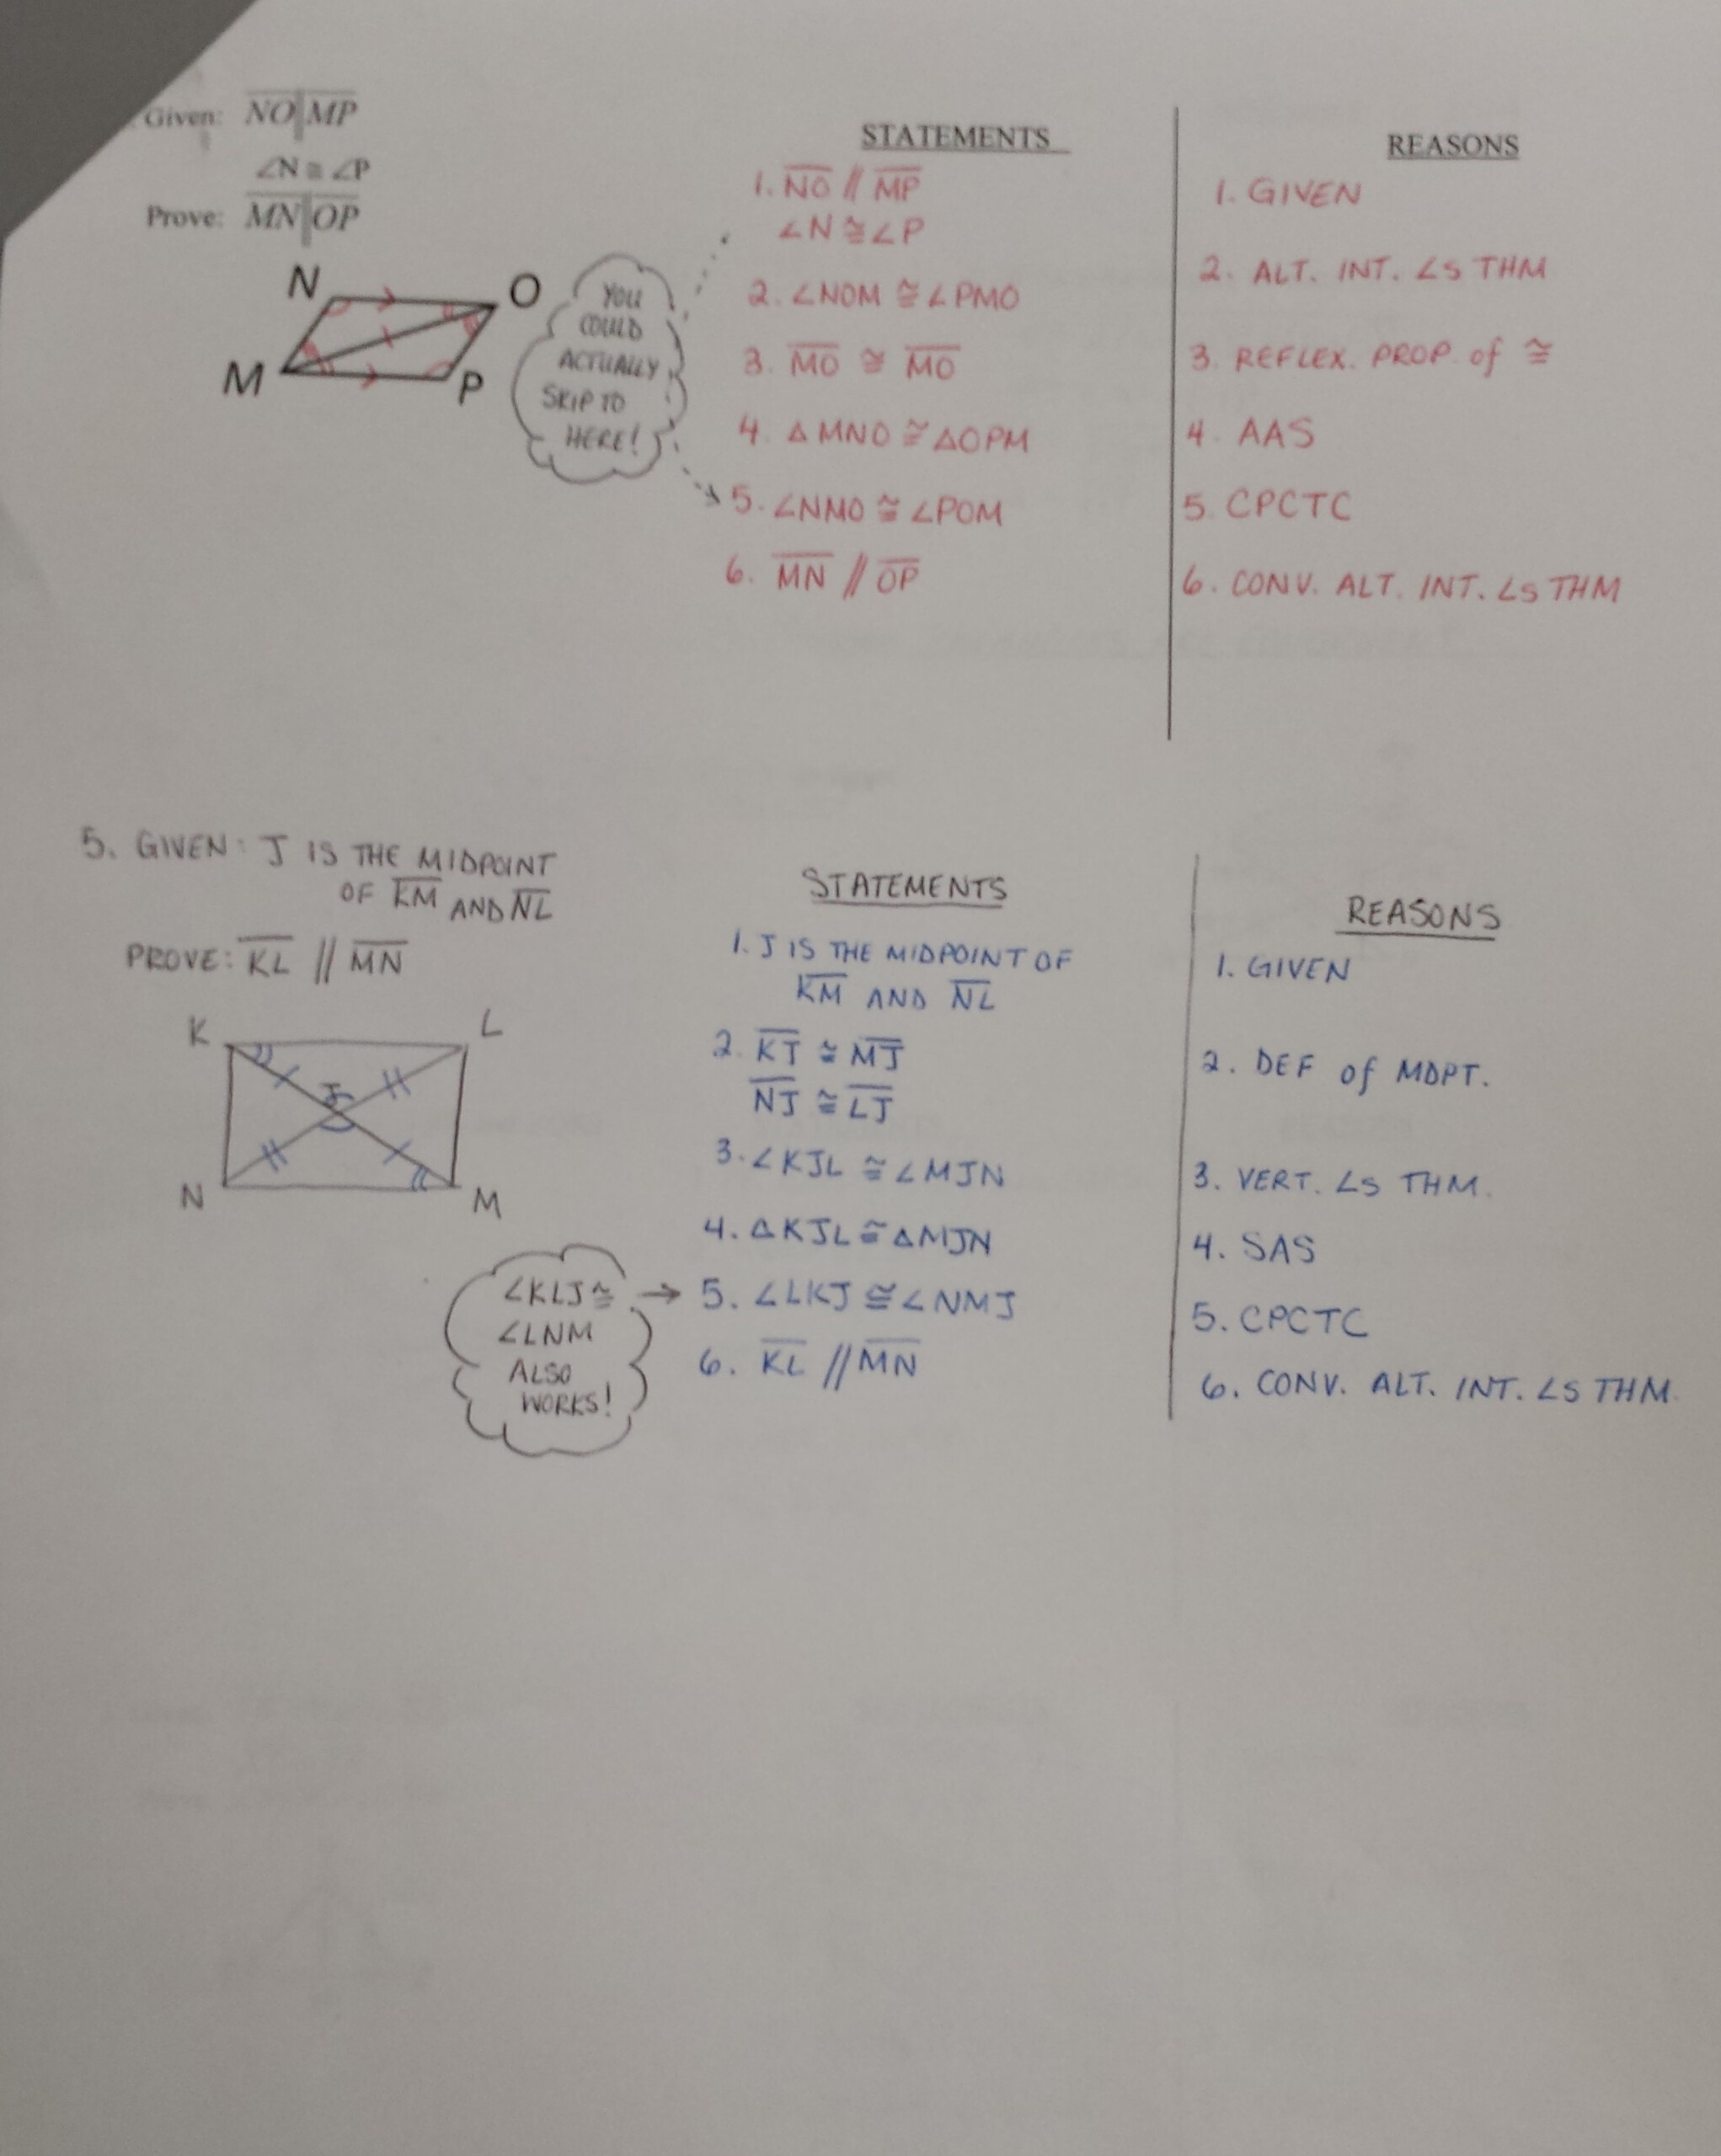 Given: NO || MP
∠N ≅ ∠P
Prove: MN || OP
N
O
M
P
YOU
COULD
ACTUALLY
SKIP TO
HERE!
STATEMENTS
1. NO // MP
∠N ≅ ∠P
2. ∠NOM ≅ ∠PMO
3. MO ≅ MO
4. △MNO ≅ △OPM
5. ∠NMO ≅ ∠POM
6. MN // OP
REASONS
1. GIVEN
2. ALT. INT. ∠S THM
3. REFLEX. PROP. of ≅
4. AAS
5. CPCTC
6. CONV. ALT. INT. ∠S THM
5. GIVEN: J IS THE MIDPOINT
OF KM AND NL
PROVE: KL // MN
K
L
J
N
M
∠KLJ ≅
∠LNM
ALSO
WORKS!
STATEMENTS
1. J IS THE MIDPOINT OF
KM AND NL
2. KJ ≅ MJ
NJ ≅ LJ
3. ∠KJL ≅ ∠MJN
4. △KJL ≅ △MJN
5. ∠LKJ ≅ ∠NMJ
6. KL // MN
REASONS
1. GIVEN
2. DEF of MDPT.
3. VERT. ∠S THM.
4. SAS
5. CPCTC
6. CONV. ALT. INT. ∠S THM.